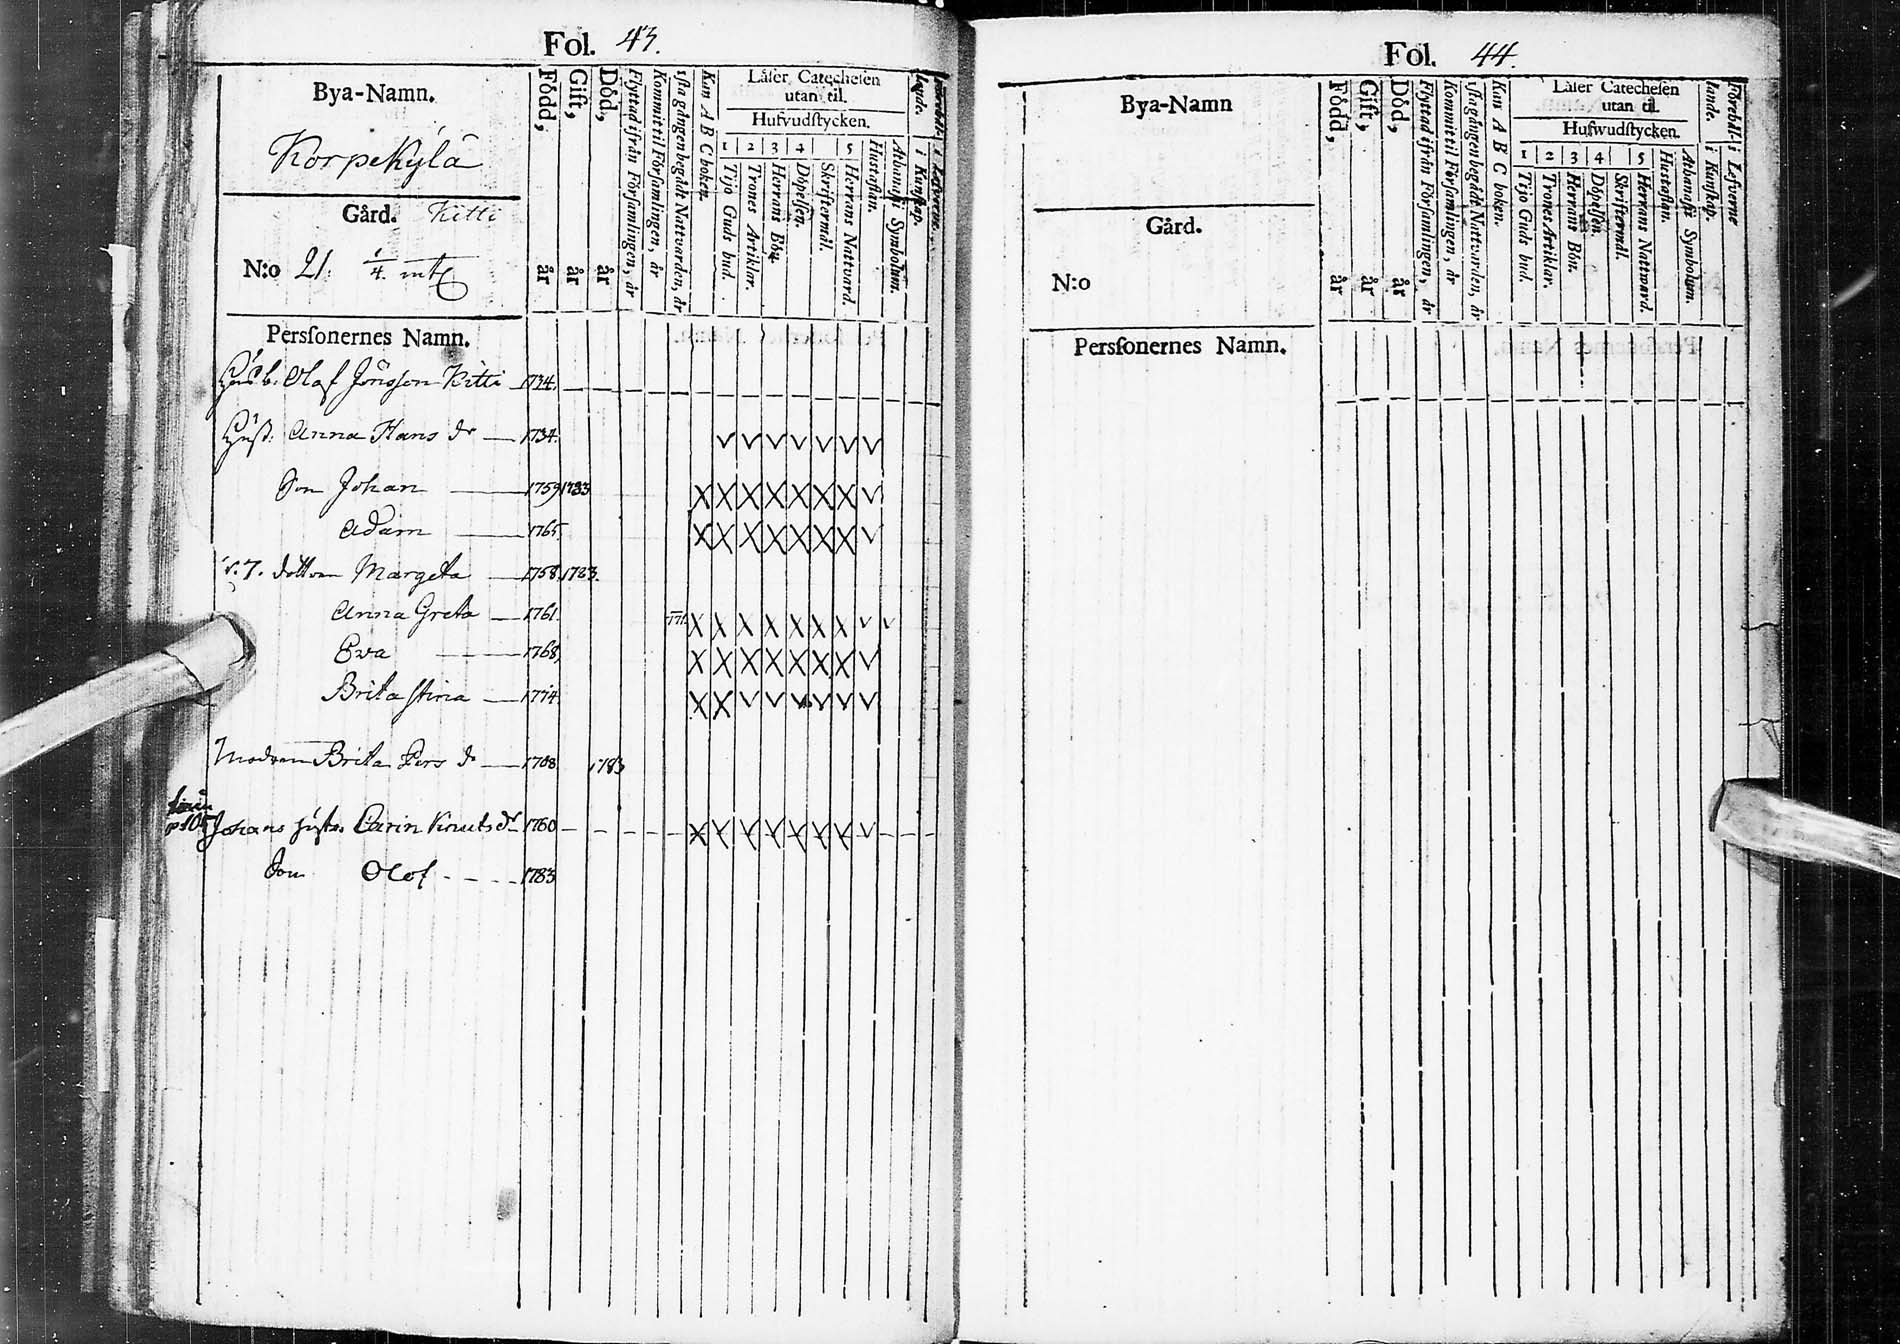 Fol. 43.
Bya-Namn.
Korpekylä
Gård. Kitti
N:o 21. 1/4. mtl
Född, år
Gift, år
Död, år
Flyttad ifrån Församlingen, år
Kommit til Församlingen, år
1sta gången begådt Nattvarden, år
Kan A B C boken.
Läser Catechesen
utan til.
Hufvudstycken.
1 2 3 4 5
Tijo Guds bud.
Trones Artiklar.
Herrans Bön.
Döpelsen.
Skriftermål.
Herrans Nattvard.
Hustaflan.
Athanasii Symbolum.
i Kunskap.
i Lefverne
Persſonernes Namn.
Husb: Olof Jönsson Kitti 1734.
Hust: Anna Hans dr 1734.
Son Johan 1759 1783
Adam 1765
dottren Margeta 1758. 1783.
Anna Greta 1761.
Eva 1768
Brita Stina 1774
Modren Brita Pers dr 1708 1783
Johans hustro Carin Knuts dr 1760
Son Olof 1783
Fol. 44.
Bya-Namn
Gård.
N:o
Född, år
Gift, år
Död, år
Flyttad ifrån Församlingen, år
Kommit til Församlingen, år
1sta gången begådt Nattvarden, år
Kan A B C boken.
Läser Catechesen
utan til.
Hufwudstycken.
1 2 3 4 5
Tijo Guds bud.
Trones Artiklar.
Herrans Bön.
Döpelsen.
Skriftermål.
Herrans Nattvard.
Hustaflan.
Athanasii Symbolum.
Förhål-
lande.
i Kunskap.
i Lefverne
Persſonernes Namn.